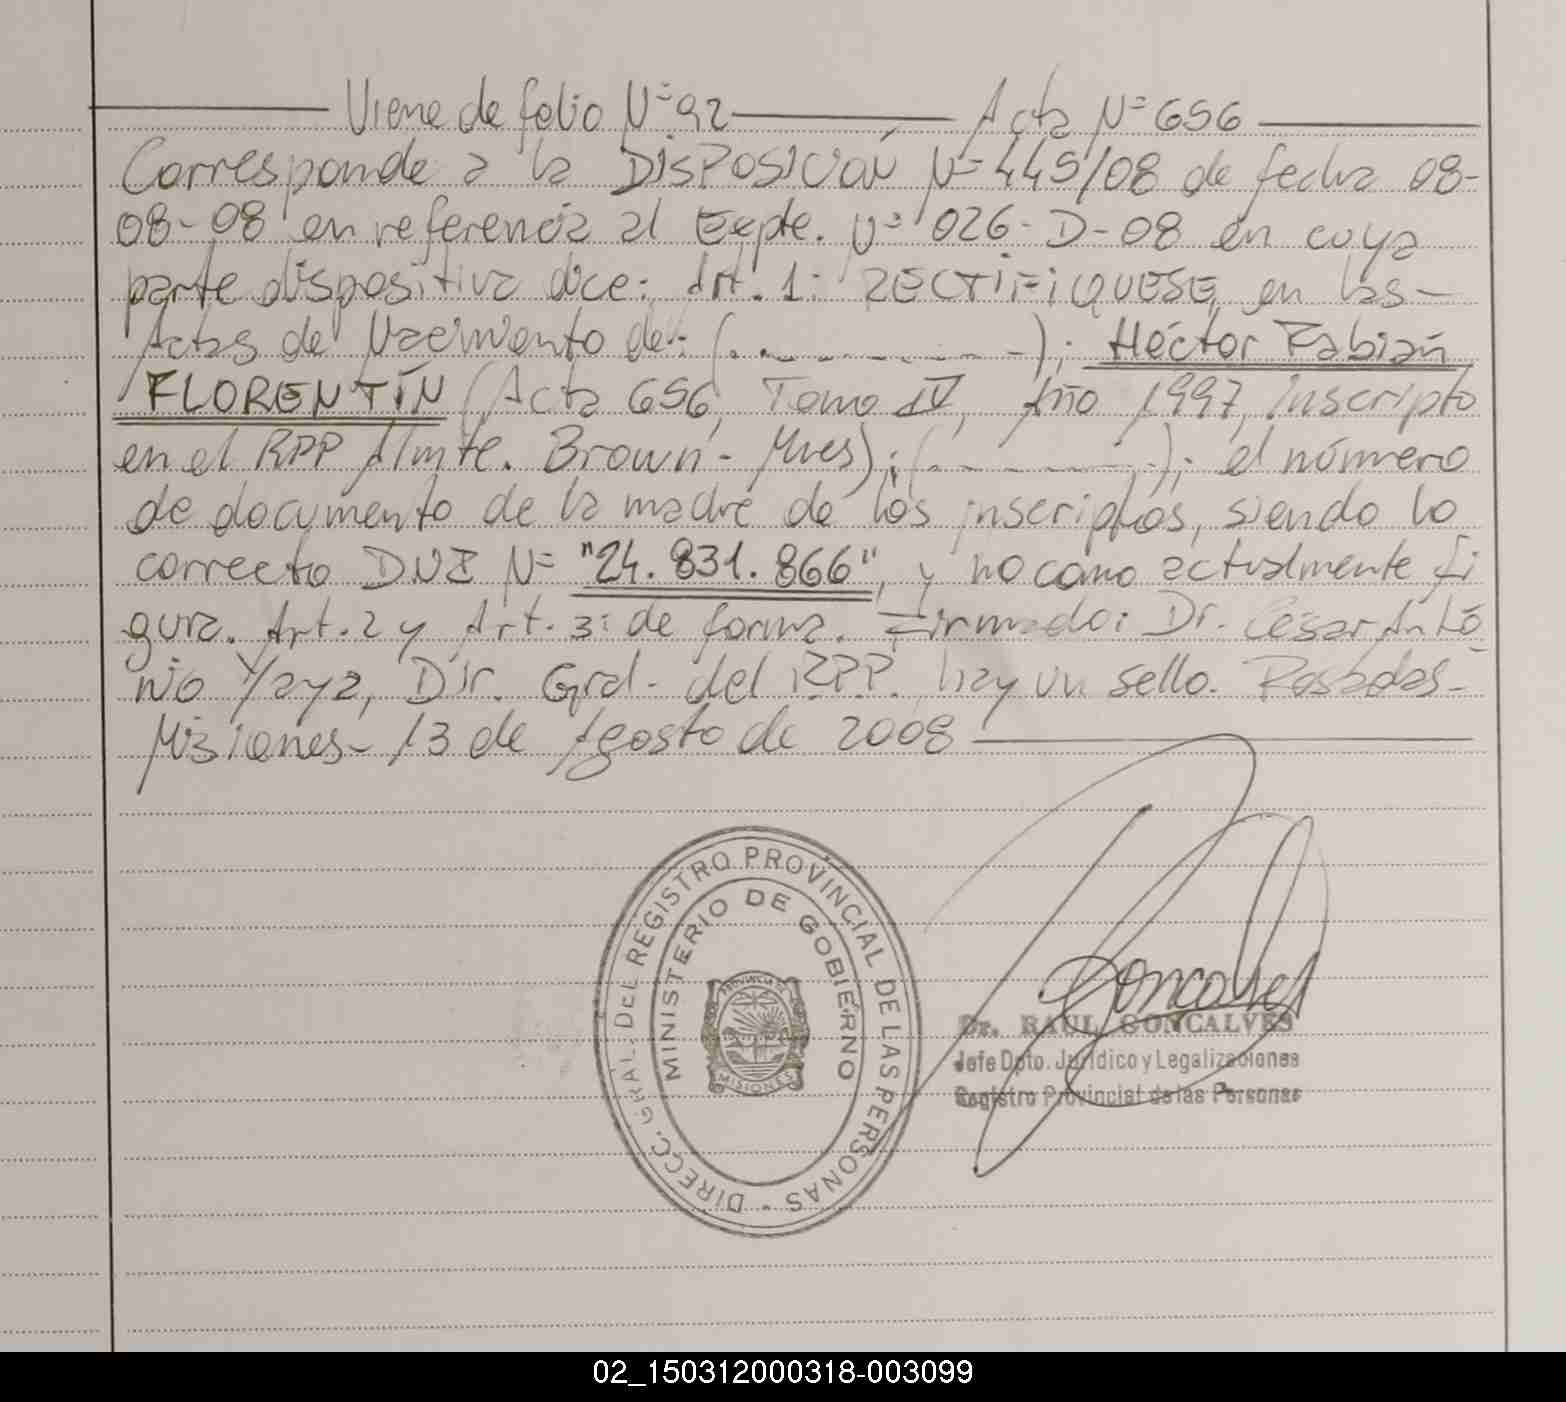 Viene de folio Nº 92 Acta Nº 656
Corresponde a la DISPOSICIÓN Nº 445/08 de fecha 08-
08-08 en referencia al Expte. Nº 026-D-08 en cuya
parte dispositiva dice: Art. 1: RECTIFIQUESE, en las-
Actas de Nacimiento de: (. . - - - - - - - -); Héctor Fabián
FLORENTÍN (Acta 656, Tomo IV, Año 1997, inscripto
en el RPP Almte. Brown- Mnes); (- - - - - - - -); el número
de documento de la madre de los inscriptos, siendo lo
correcto DNI Nº "24.831.866", y no como actualmente fi
gura. Art. 2 y Art. 3: de forma. Firmado: Dr. César Antó
nio Yaya, Dir. Gral- del RPP. hay un sello. Posadas-
Misiones- 13 de Agosto de 2008
DIRECC. GRAL. DEL REGISTRO PROVINCIAL DE LAS PERSONAS -
MINISTERIO DE GOBIERNO
PROVINCIA DE
MISIONES
Goncalves
Dr. RAUL GONCALVES
Jefe Dpto. Jurídico y Legalizaciones
Registro Provincial de las Personas
02_150312000318-003099